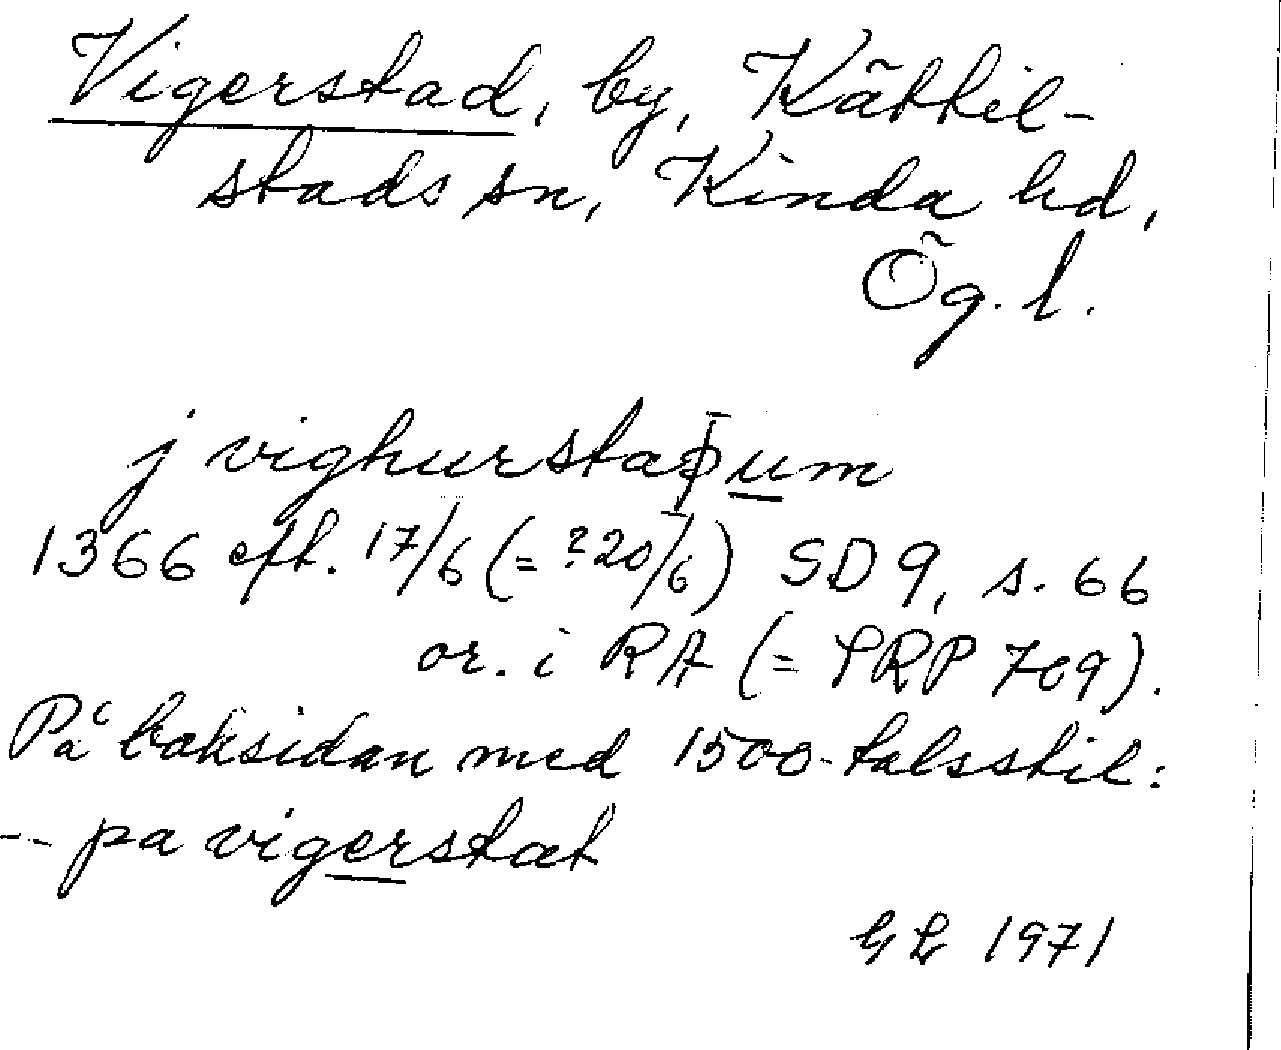 Vigerstad, by, Kättil-
stads sn, Kinda hd,
Ög. l.
j vighurstaþum
1366 eft. 17/6 (= ?20/6) SD 9, s. 66
or. i RA (= SRP 709).
På baksidan med 1500-talsstil:
-- pa vigerstat
GL 1971